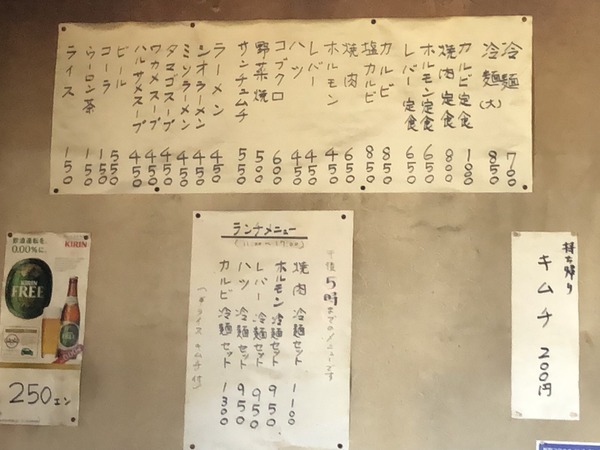 冷麺 700
冷麺(大) 850
カルビ定食
焼肉定食 800
ホルモン定食 650
レバー定食 650
カルビ 850
塩カルビ 850
焼肉 650
ホルモン 450
レバー 450
ハツ 450
コブクロ 600
野菜焼 500
サンチュムチ 550
ラーメン 450
シオラーメン 450
ミソラーメン 450
タマゴスープ 450
ワカメスープ 450
ハルサメスープ 450
ビール 550
コーラ 150
ウーロン茶 150
ライス 150
飲酒運転を、
0.00%に。
KIRIN
KIRIN
FREE
0.00%
250エン
ランチメニュー
午後5時までのメニューです
焼肉 冷麺セット 1100
ホルモン 冷麺セット 950
レバー 冷麺セット 950
ハツ 冷麺セット 950
カルビ 冷麺セット 1300
(半ライス キムチ 付)
持ち帰り
キムチ 200円